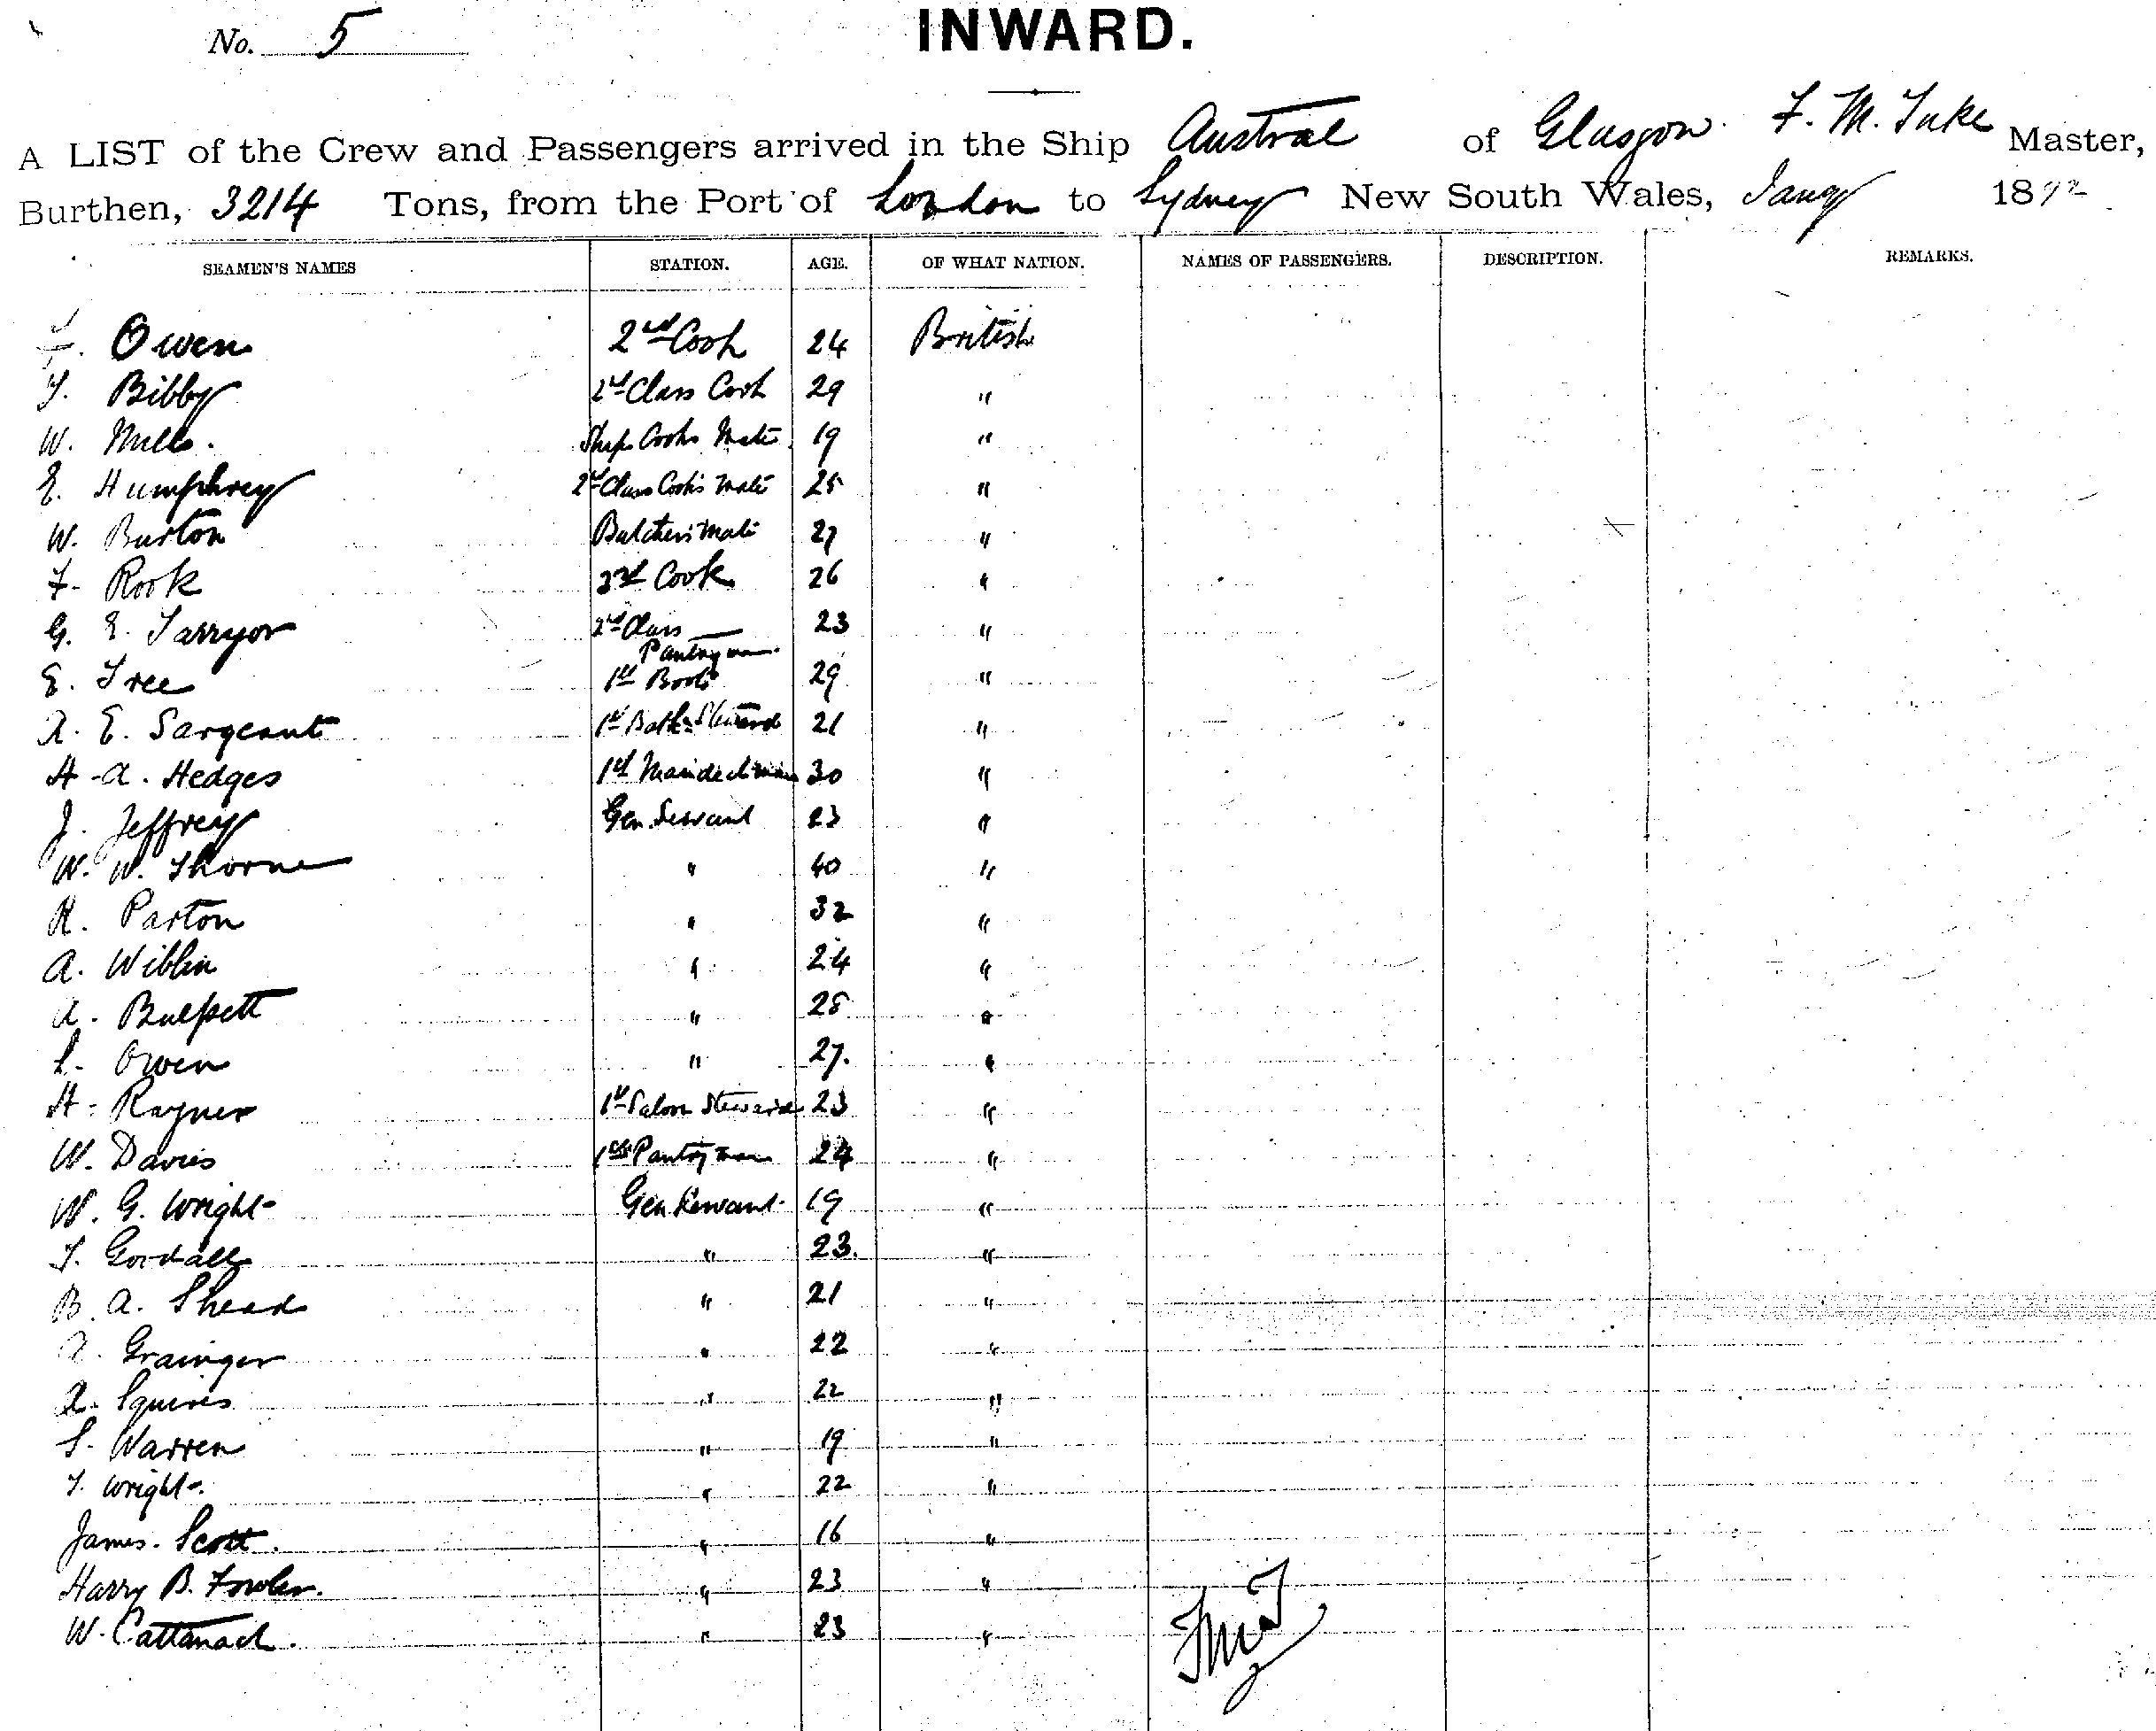 No. 5
INWARD.
A LIST of the Crew and Passengers arrived in the Ship Austral of Glasgow. F. M. Tuke Master,
Burthen, 3214 Tons, from the Port of London to Sydney New South Wales, Jany 1892
SEAMEN'S NAMES STATION. AGE. OF WHAT NATION. NAMES OF PASSENGERS. DESCRIPTION. REMARKS.
Owen 2nd Cook 24 British
T. Bibby 2nd Class Cook 29 "
W. Mills. Ships Cooks Mate 19 "
E. Humphrey 2nd Class Cook's Mate 25 "
W. Burton Butcher's Mate 27 "
F. Rook 3rd Cook 26 "
G. E. Tarryor 2nd Class Pantryman 23 "
E. Tree 1st Boots 29 "
A. E. Sargeant 1st Bath Steward 21 "
H. A. Hedges 1st 30 "
J. Jeffrey Gen. Servant 23 "
W. W. Thorne " 40 "
R. Parton " 32 "
A. Wiblin " 24 "
A. Bulpett " 28 "
L. Owen " 27. "
H. Rayner 1st Saloon Steward 23 "
W. Davies 1st Pantryman 24 "
W. G. Wright Gen Servant 19 "
T. Goodall " 23. "
B. A. Shead " 21 "
A. Grainger " 22 "
A. Squires " 22 "
S. Warren " 19 "
T. Wright. " 22 "
James. Scott. " 16 "
Harry B. Fowler. " 23 "
W. Cattanach. " 23 "
FMT